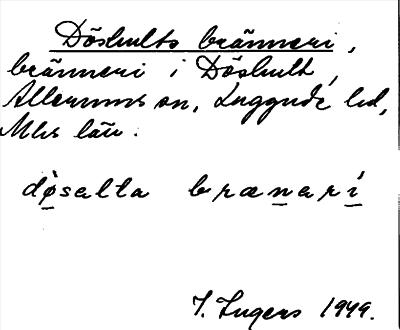 Döshults bränneri,
bränneri i Döshult,
Allerums sn, Luggude hd,
Mlhs län.
døsalta brænarí
I. Ingers 1949.